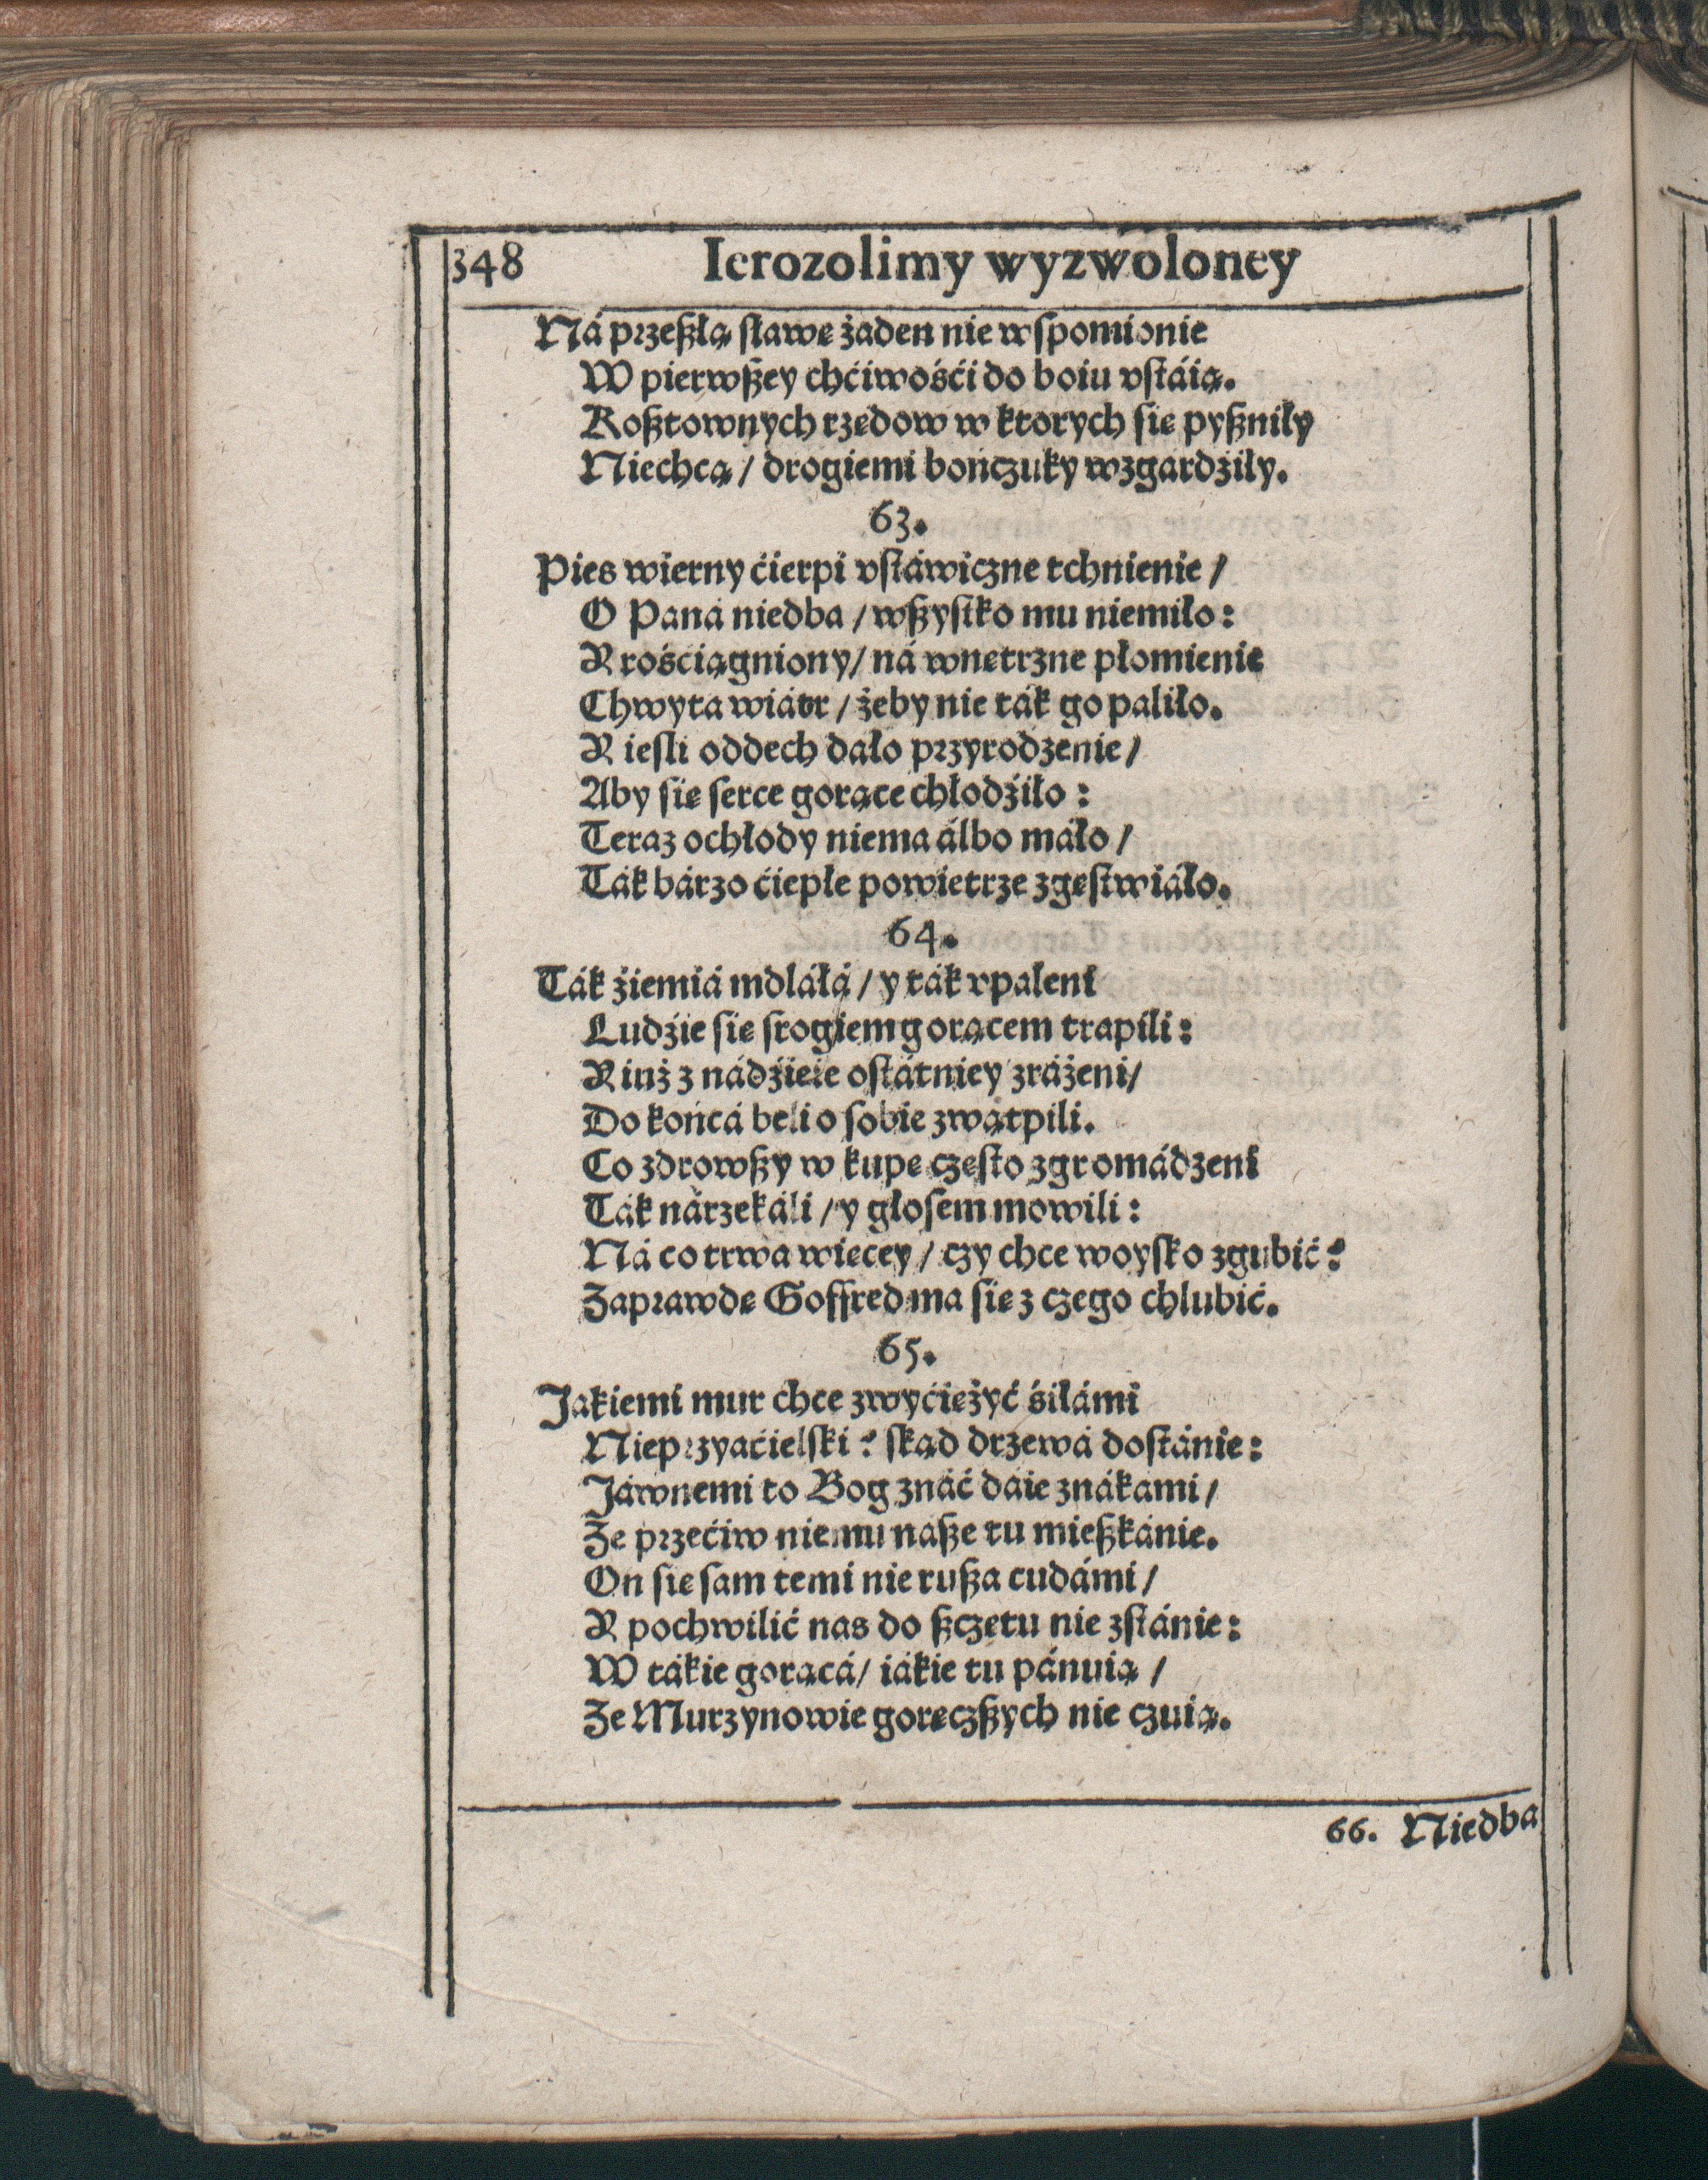 348 Ierozolimy wyzwoloney
Ná przeßłą sławę żaden nie wſpomionie
W pierwßey chćiwośći do boiu vſtáią.
Koßtownych rzędow w ktorych ſię pyßniły
Niechcą / drogiemi bończuky wzgardźiły.
63.
Pies wierny ćierpi vſtáwiczne tchnienie /
O Paná niedba / wßyſtko mu niemiło:
Y rośćiągniony / ná wnętrzne płomienie
Chwyta wiátr / żeby nie ták go paliło.
Y ieſli oddech dáło przyrodzenie /
Aby ſię ſerce gorące chłodźiło:
Teraz ochłody niema álbo máło /
Ták bárzo ćiepłe powietrze zgęſtwiáło.
64.
Ták źiemiá mdláłá / y ták vpaleni
Ludźie ſię ſrogiem gorącem trapili:
Y iuż z nádźieie oſtátniey zráżeni /
Do końcá beli o ſobie zwątpili.
Co zdrowßy w kupę częſto zgromádzeni
Ták nárzekáli / y głoſem mowili:
Ná co trwa więcey / czy chce woyſko zgubić?
Zaprawdę Goffred ma ſię z czego chlubić.
65.
Jakiemi mur chce zwyćiężyć śiłámi
Nieprzyaćielſki? ſkąd drzewá doſtánie:
Jáwnemi to Bog znáć dáie znákami /
Że przećiw niemu náße tu mießkánie.
On ſię ſam temi nie rußa cudámi /
Y pochwilić nas do ßczętu nie zſtánie:
W tákie gorącá / iákie tu pánuią /
Że Murzynowie goręczßych nie czuią.
66. Niedba